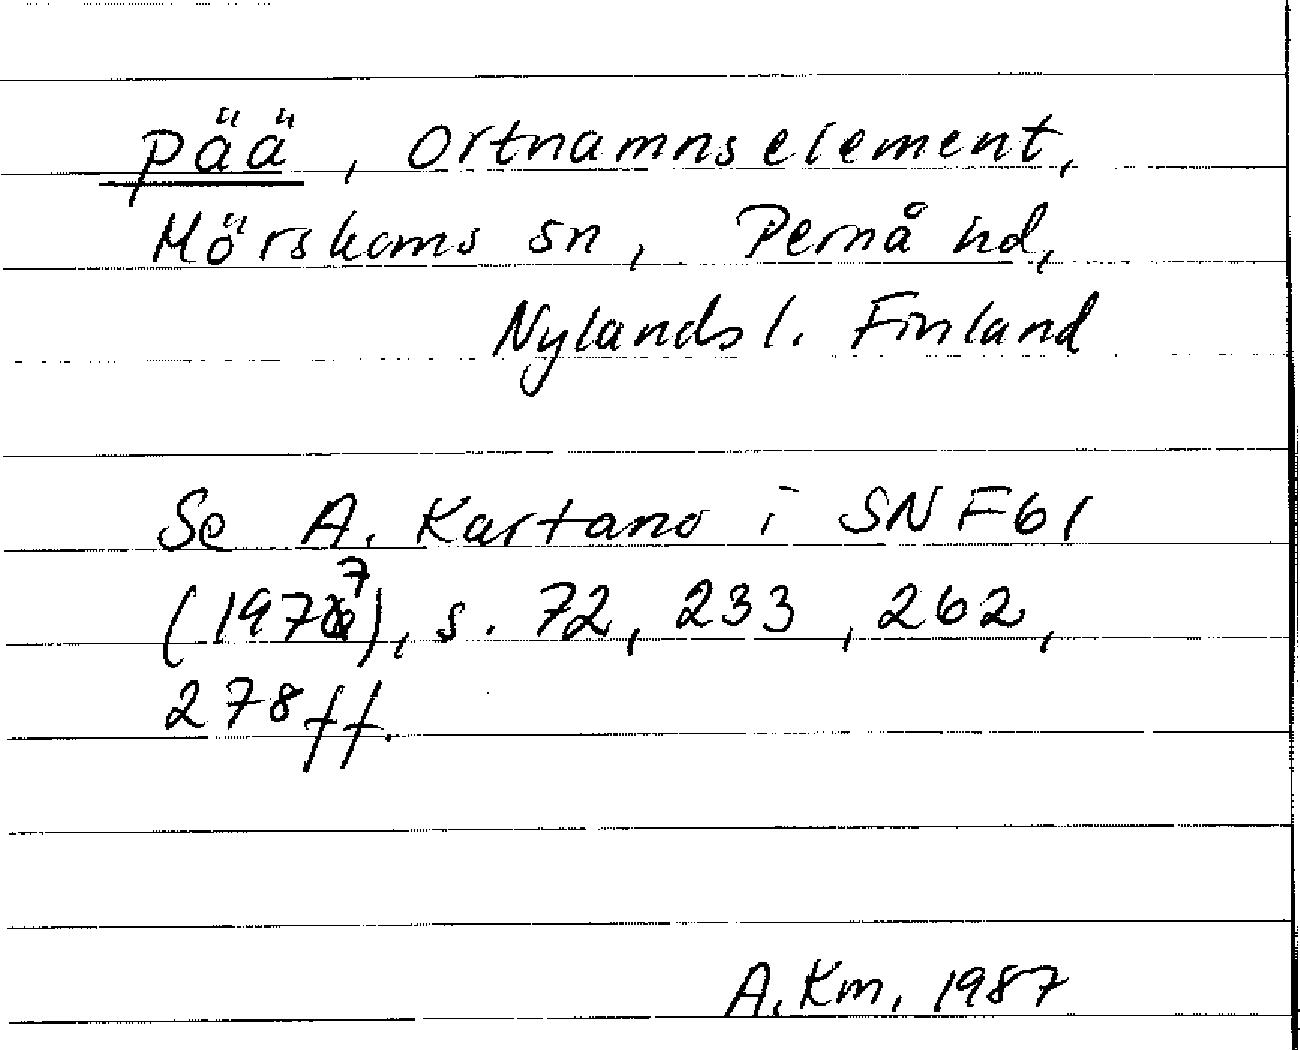 pää, Ortnamnselement,
Mörskoms sn, Pernå hd,
Nylands l. Finland
Se A. Kartano i SNF 61
(1977), s. 72, 233, 262,
278 ff.
A. Km. 1987